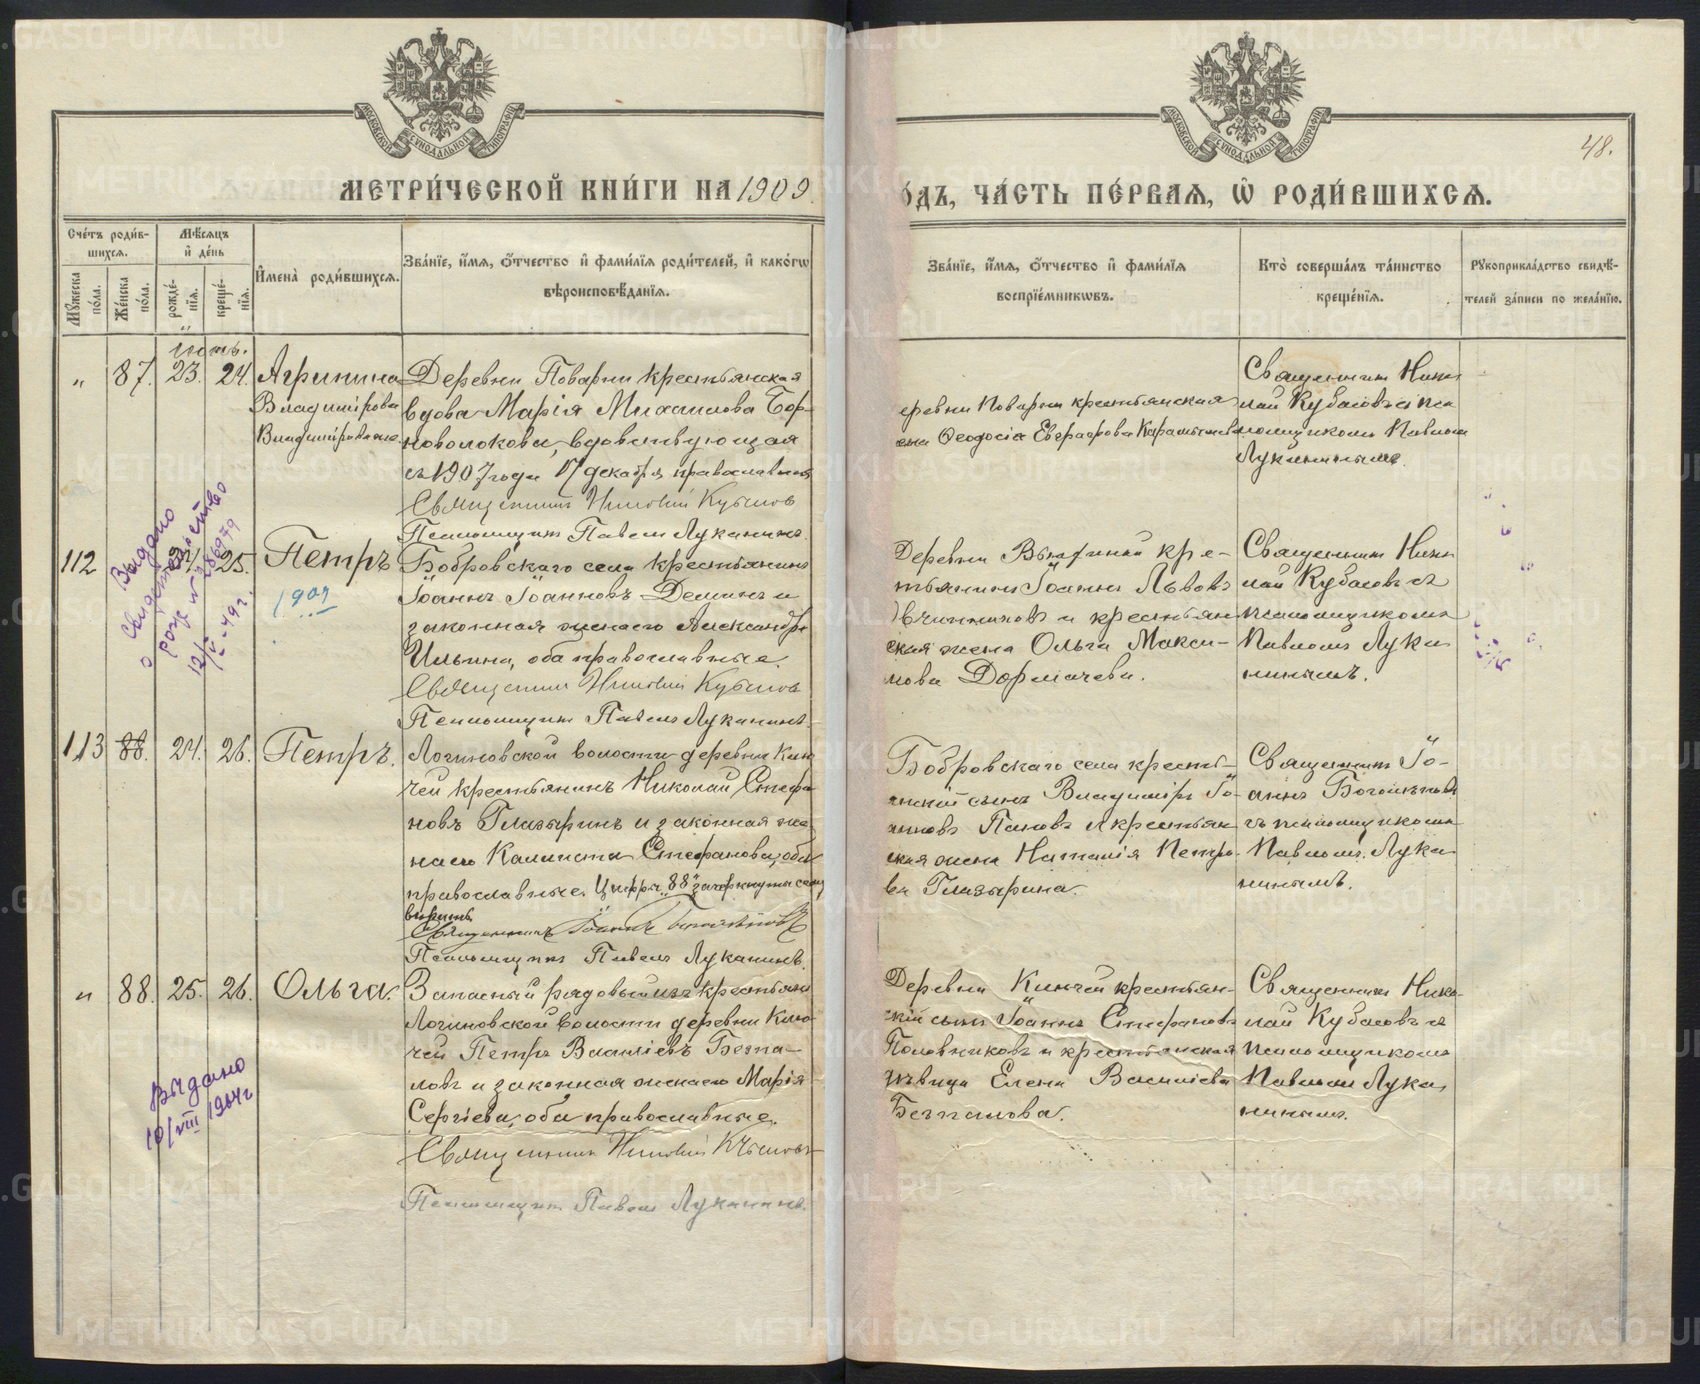 МЕТРИ́ЧЕСКОЙ КНИ́ГИ НА 1909
ОДЪ, ЧА́СТЬ ПЕ́РВАЯ, Ѡ РОДИ́ВШИХСЯ.
48.
Сче́тъ роди́в-
шихся.
Мѣ́сяцъ
и́ де́нь
Му́жеска
по́ла.
Же́нска
по́ла.
рожде́-
нїя.
креще́-
нїя.
И҆мена̀ роди́вшихся.
Зва́нїе, и҆́мя, ѻ҆́тчество и҆ фами́лїя роди́телей, и҆ како́гѡ
вѣроисповѣ́данїя.
Зва́нїе, и҆́мя, ѻ҆́тчество и҆ фами́лїя
воспрїе́мникѡвъ.
Кто̀ соверша́лъ та́инство
креще́нїя.
Рꙋкоприкла́дство свидѣ́-
телей за́писи по жела́нїю.
" 87. 23. 24.
Агрипина
Владимірова
Деревни Поварни крестьянская
вдова Марія Михаилова Бор-
новолокова, вдовствующая
съ 1907 года 17 декабря, православная
Священникъ Николай Кубасов
Псаломщикъ Павелъ Луканинъ.
еревни Поварни крестьянская
Ѳеодосія Евграфова
Священник Нико
лай Кубасовъ съ пса
ломщикомъ Павлом
Луканинымъ.
112 25.
Петръ
1909
Выдано
свидетельство
о рожд. №
12/V-49 г.
Бобровскаго села крестьянинъ
Іоаннъ Іоанновъ Деминъ и
законная жена его Александра
Ильина, оба православные.
Священник Николай Кубасов
Псаломщик Павелъ Луканинъ
Деревни кре-
стьянинъ Іоаннъ Львовъ
Овчинниковъ и крестьян
ская жена Ольга Макси-
мова Дормачева.
Священник Нико
лай Кубасовъ съ
псаломщикомъ
Павломъ Лука
нинымъ.
113 88. 24. 26.
Петръ.
Логиновской волости деревни Клю
чей крестьянинъ Николай Стефа
новъ Глазыринъ и законная же
на его Калиста Стефанова, оба
православные. Цифры "88" зачеркнуты
вѣрить.
Священникъ Іоаннъ
Псаломщикъ Павелъ Луканинъ.
Бобровскаго села кресть-
янскій сынъ Владиміръ Іо-
анновъ Пановъ и крестьян
ская жена Наталія Петро-
ва Глазырина.
Священникъ Іо-
аннъ
съ псаломщикомъ
Павломъ Лука
нинымъ.
" 88. 25. 26.
Ольга.
Выдано
10/VIII
Запасный рядовый изъ крестьянъ
Логиновской волости деревни Клю-
чей Петръ Василіевъ Безпа-
ловъ и законная жена его Марія
Сергіева, оба православные.
Священник Николай Кубасовъ
Псаломщик Павелъ Луканинъ.
Деревни Ключей крестьян-
скій сынъ Іоаннъ Стефановъ
Половниковъ и крестьянская
дѣвица Елена Василіева
Безпалова.
Священник Нико-
лай Кубасовъ съ
псаломщикомъ
Павломъ Лука
нинымъ.
METRIKI.GASO-URAL.RU